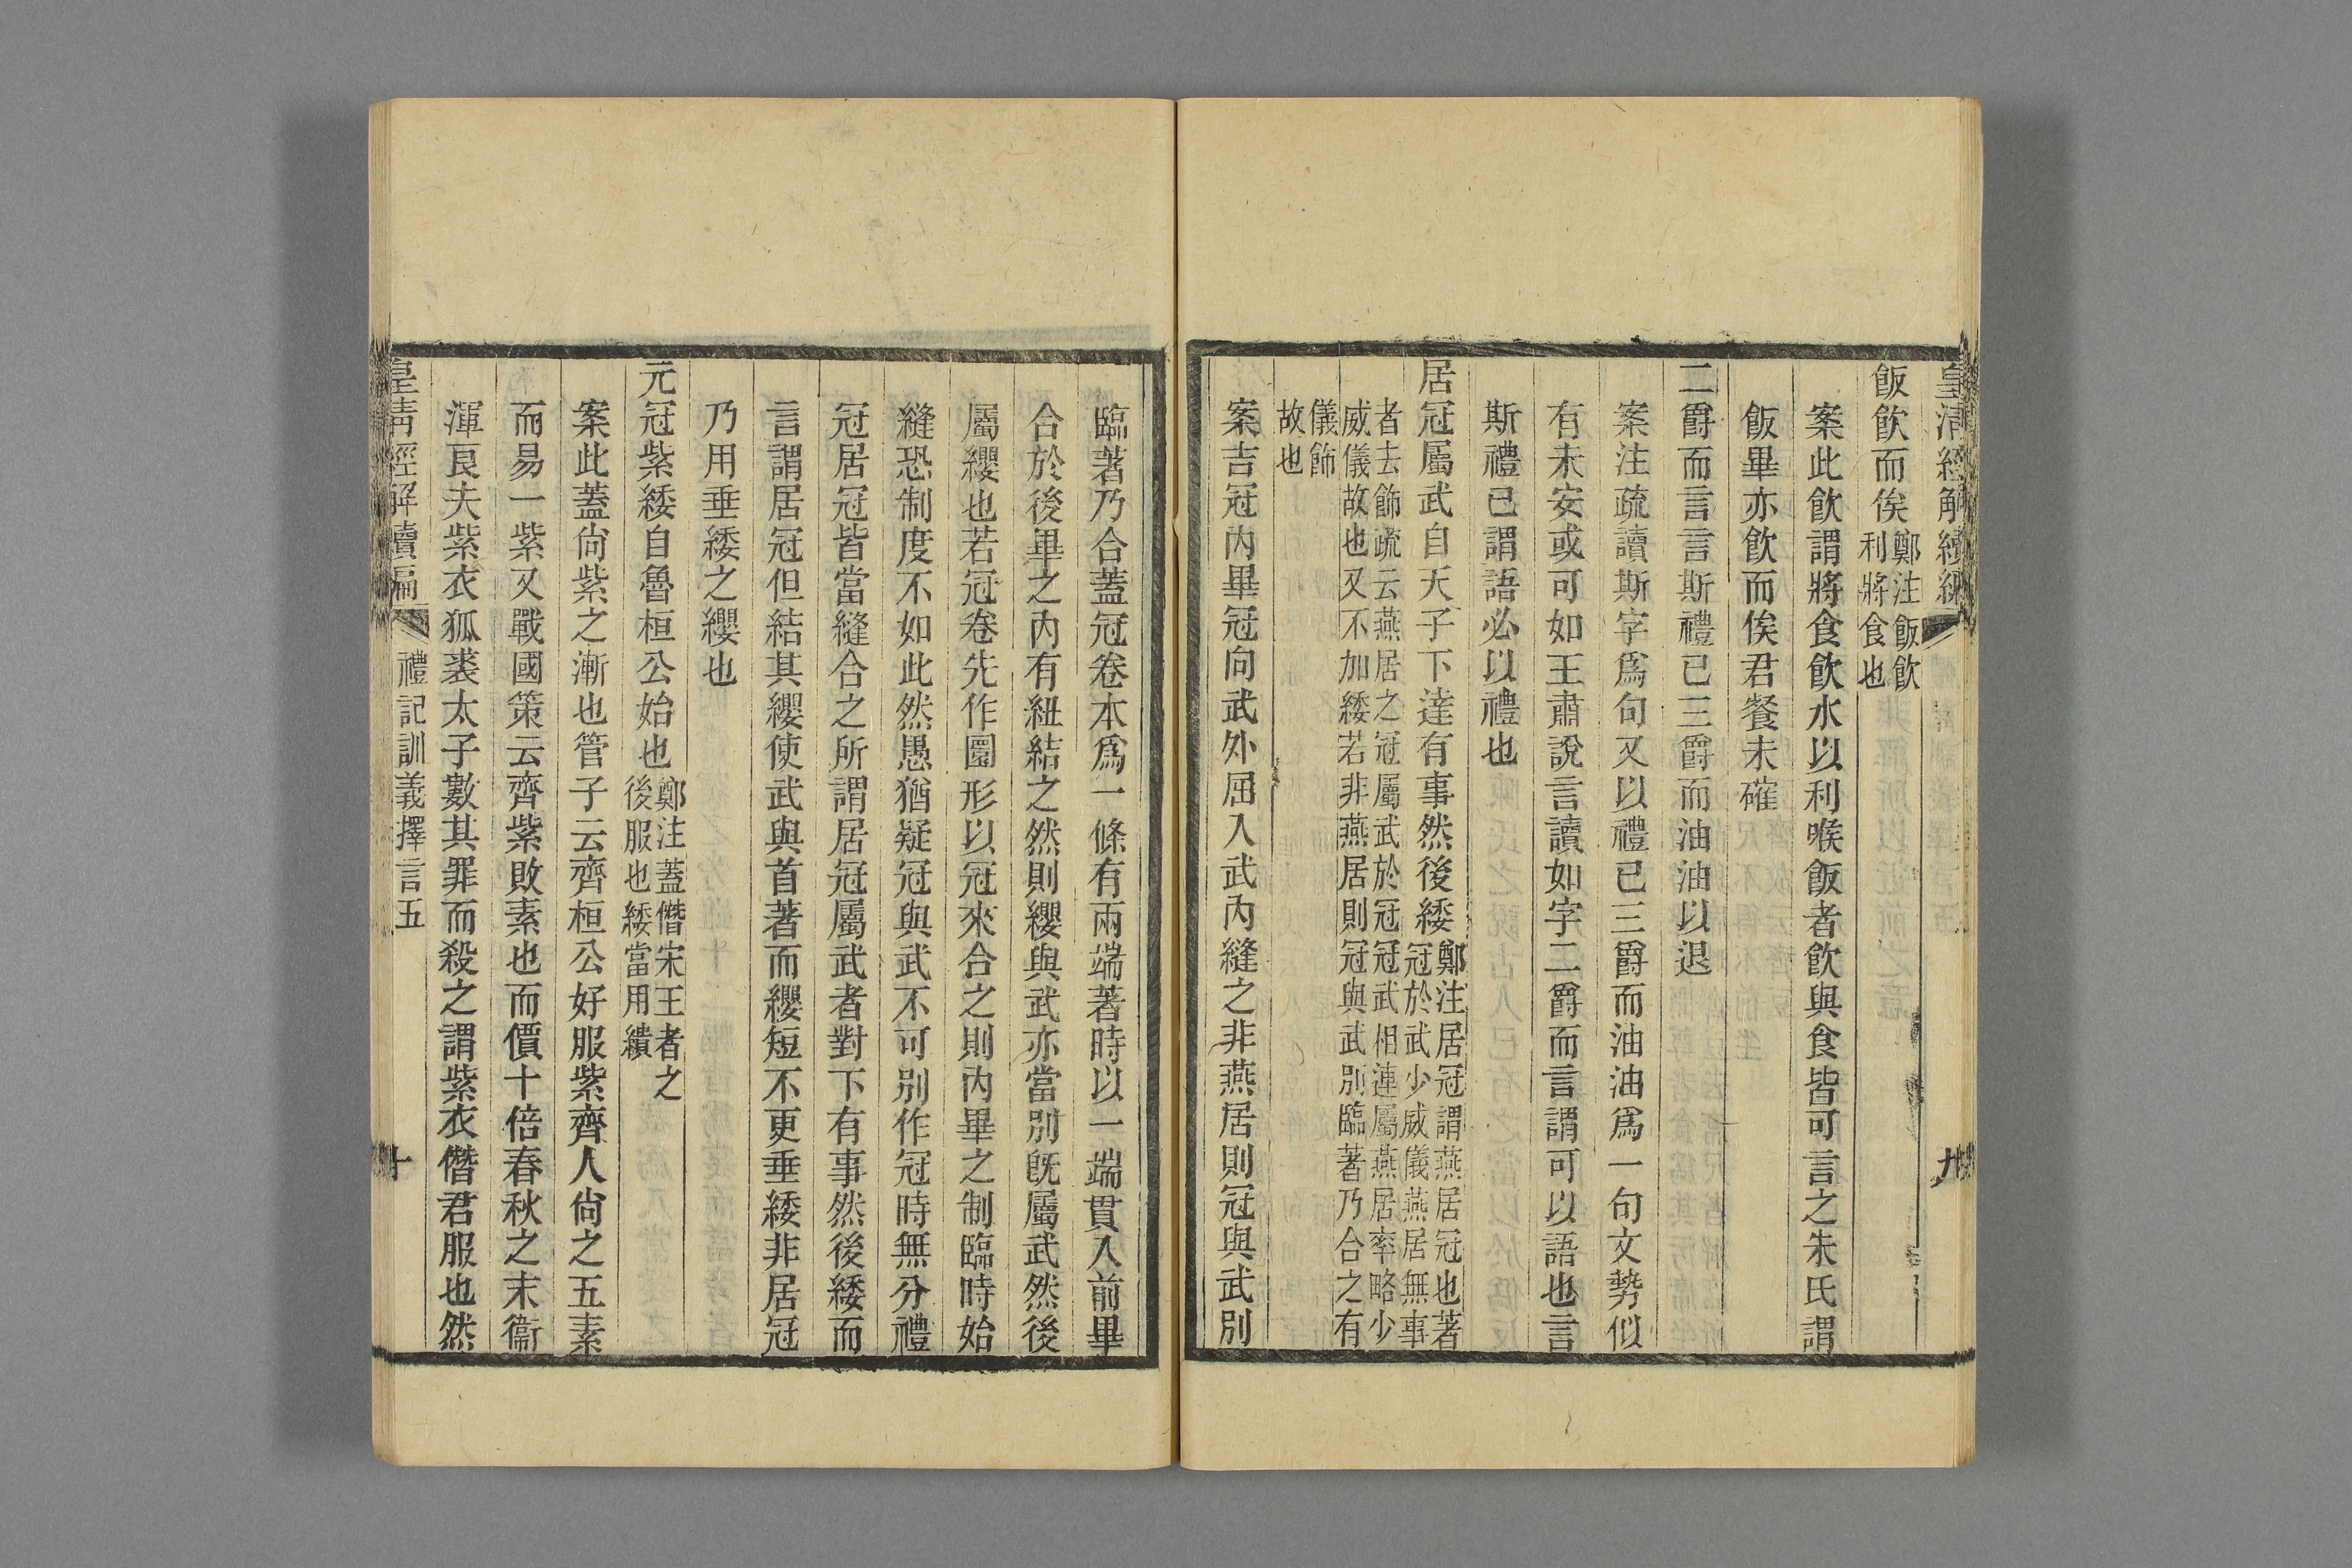 皇清經解續編
九
飯飲而俟鄭注飯飲
利將食也
案此飲謂將食飲水以利喉飯者飲與食皆可言之朱氏謂
飯畢亦飲而俟君餐未確
二爵而言言斯禮已三爵而油油以退
案注疏讀斯字爲句又以禮已三爵而油油爲一句文勢似
有未安或可如王肅說言讀如字二爵而言謂可以語也言
斯禮已謂語必以禮也
居冠屬武自天子下達有事然後緌鄭注居冠謂燕居冠也著
冠於武少威儀燕居無事
者去飾疏云燕居之冠屬武於冠冠武相連屬燕居率略少
威儀故也又不加緌若非燕居則冠與武別臨著乃合之有
儀飾
故也
案吉冠內畢冠向武外屈入武內縫之非燕居則冠與武別
臨著乃合蓋冠卷本爲一條有兩端著時以一端貫入前畢
合於後畢之內有紐結之然則纓與武亦當別旣屬武然後
屬纓也若冠卷先作圈形以冠來合之則內畢之制臨時始
縫恐制度不如此然愚猶疑冠與武不可別作冠時無分禮
冠居冠皆當縫合之所謂居冠屬武者對下有事然後緌而
言謂居冠但結其纓使武與首著而纓短不更垂緌非居冠
乃用垂緌之纓也
元冠紫緌自魯桓公始也鄭注蓋僭宋王者之
後服也緌當用繢
案此蓋尙紫之漸也管子云齊桓公好服紫齊人尙之五素
而易一紫又戰國策云齊紫敗素也而價十倍春秋之末衞
渾良夫紫衣狐裘太子數其罪而殺之謂紫衣僭君服也然
皇清經解續編
禮記訓義擇言五
十